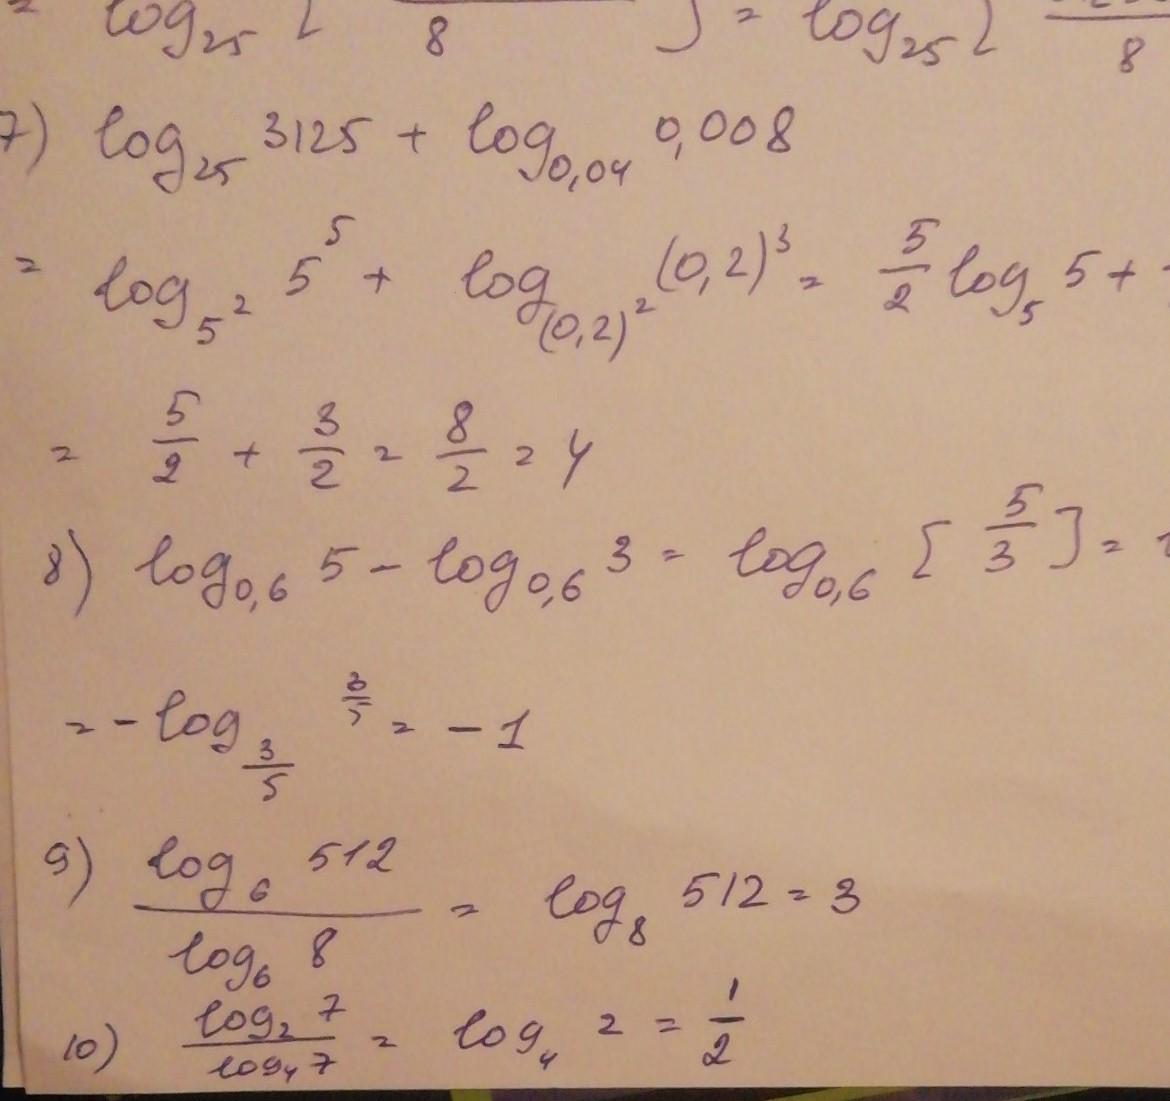 = log₂₅ [ 8 ] = log₂₅ [ 8
7) log₂₅ 3125 + log₀,₀₄ 0,008
= log₅² 5⁵ + log₍₀,₂₎² (0,2)³ = 5/2 log₅ 5 +
= 5/2 + 3/2 = 8/2 = 4
8) log₀,₆ 5 - log₀,₆ 3 = log₀,₆ [ 5/3 ] =
= - log_3/5 3/5 = - 1
9) log₆ 512 / log₆ 8 = log₈ 512 = 3
10) log₂ 7 / log₄ 7 = log₄ 2 = 1/2